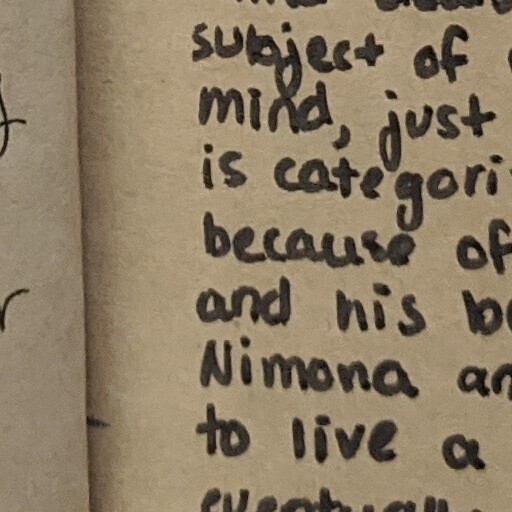 subject of
mind, just
is categori
because of
and his be
Nimona an
to live a
eventually